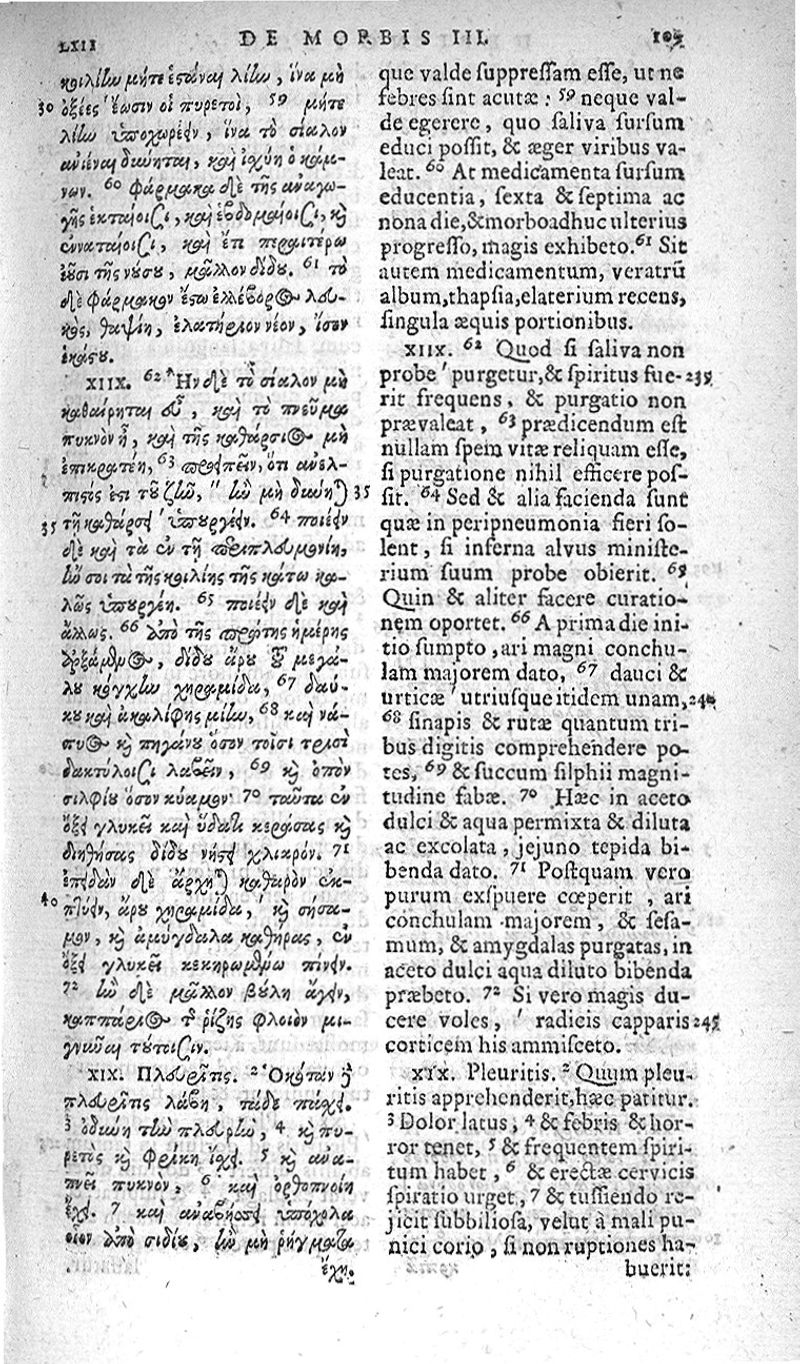 LXII DE MORBIS III. 105
κοιλίην μήτε ἑστάναι λίην, ἵνα μὴ
30 ὀξέες ἔωσιν οἱ πυρετοὶ, 59 μήτε
λίην ὑποχωρέειν, ἵνα τὸ σίαλον
ἀνιέναι δύνηται, καὶ ἰσχύῃ ὁ κάμ-
νων. 60 φάρμακα δὲ τῆς ἀναγω-
γῆς ἑκταίοισι, καὶ ἑβδομαίοισι, καὶ
ἐνναταίοισι, καὶ ἔτι περαιτέρω
ἐοῦσι τῆς νούσου, μᾶλλον δίδου. 61 τὸ
δὲ φάρμακον ἔστω ἐλλέβορος λευ-
κὸς, θαψίη, ἐλατήριον νέον, ἴσον
ἑκάστου.
XIIX. 62 Ἢν δὲ τὸ σίαλον μὴ
καθαίρηται εὖ, καὶ τὸ πνεῦμα
πυκνὸν ᾖ, καὶ τῆς καθάρσιος μὴ
ἐπικρατέῃ, 63 προειπεῖν, ὅτι ἀνέλ-
πιστός ἐστι τοῦ ζῆν, ἢν μὴ δύνηται 35
35 τῇ καθάρσει ὑπουργέειν. 64 ποιέειν
δὲ καὶ τὰ ἐν τῇ περιπλευμονίῃ,
ἤν σοι τὰ τῆς κοιλίης τῆς κάτω κα-
λῶς ὑπουργέῃ. 65 ποιέειν δὲ καὶ
ἄλλως. 66 ἀπὸ τῆς πρώτης ἡμέρης
ἀρξάμενος, δίδου ἄρου τοῦ μεγά-
λου κόγχην χηραμίδα, 67 δαύ-
κου καὶ ἀκαλίφης μίην, 68 καὶ νά-
πυος καὶ πηγάνου ὅσον τοῖσι τρισὶ
δακτύλοισι λαβεῖν, 69 καὶ ὀπὸν
σιλφίου ὅσον κύαμον· 70 ταῦτα ἐν
ὄξει γλυκεῖ καὶ ὕδατι κεράσας καὶ
διηθήσας δίδου νήστει χλιαρόν. 71
ἐπειδὰν δὲ ἄρχηται καθαρὸν ἐκ-
40 πτύειν, ἄρου χηραμίδα, καὶ σήσα-
μον, καὶ ἀμύγδαλα καθήρας, ἐν
ὄξει γλυκεῖ κεκρημένῳ πίνειν.
72 ἢν δὲ μᾶλλον βούλῃ ἄγειν,
καππάριος τῆς ῥίζης φλοιὸν μι-
γνύναι τούτοισιν.
XIX. Πλευρῖτις. 2 Ὁκόταν ἡ
πλευρῖτις λάβῃ, τάδε πάσχει.
3 ὀδύνη τὴν πλευρὴν, 4 καὶ πυ-
ρετὸς καὶ φρίκη ἴσχει. 5 καὶ ἀνα-
πνεῖ πυκνὸν, 6 καὶ ὀρθοπνοίη
ἔχει. 7 καὶ ἀναβήσσει ὑπόχολα
οἷον ἀπὸ σιδίου, ἢν μὴ ῥήγματα
ἔχῃ.
que valde suppressam esse, ut ne
febres sint acutæ: 59 neque val-
de egerere, quo saliva sursum
educi possit, & æger viribus va-
leat. 60 At medicamenta sursum
educentia, sexta & septima ac
nona die, & morbo adhuc ulterius
progresso, magis exhibeto. 61 Sit
autem medicamentum, veratrũ
album, thapsia, elaterium recens,
singula æquis portionibus.
XIIX. 62 Quod si saliva non
probe ' purgetur, & spiritus fue- 235
rit frequens, & purgatio non
prævaleat, 63 prædicendum est
nullam spem vitæ reliquam esse,
si purgatione nihil efficere pos-
sit. 64 Sed & alia facienda sunt
quæ in peripneumonia fieri so-
lent, si inferna alvus ministe-
rium suum probe obierit. 65
Quin & aliter facere curatio-
nem oportet. 66 A prima die ini-
tio sumpto, ari magni conchu-
lam majorem dato, 67 dauci &
urticæ ' utriusque itidem unam, 240
68 sinapis & rutæ quantum tri-
bus digitis comprehendere po-
tes, 69 & succum silphii magni-
tudine fabæ. 70 Hæc in aceto
dulci & aqua permixta & diluta
ac excolata, jejuno tepida bi-
benda dato. 71 Postquam vero
purum exspuere cœperit, ari
conchulam majorem, & sesa-
mum, & amygdalas purgatas, in
aceto dulci aqua diluto bibenda
præbeto. 72 Si vero magis du-
cere voles, ' radicis capparis 245
corticem his ammisceto.
XIX. Pleuritis. 2 Quum pleu-
ritis apprehenderit, hæc patitur.
3 Dolor latus, 4 & febris & hor-
ror tenet, 5 & frequentem spiri-
tum habet, 6 & erectæ cervicis
spiratio urget, 7 & tussiendo re-
jicit subbiliosa, velut à mali pu-
nici corio, si non ruptiones ha-
buerit: